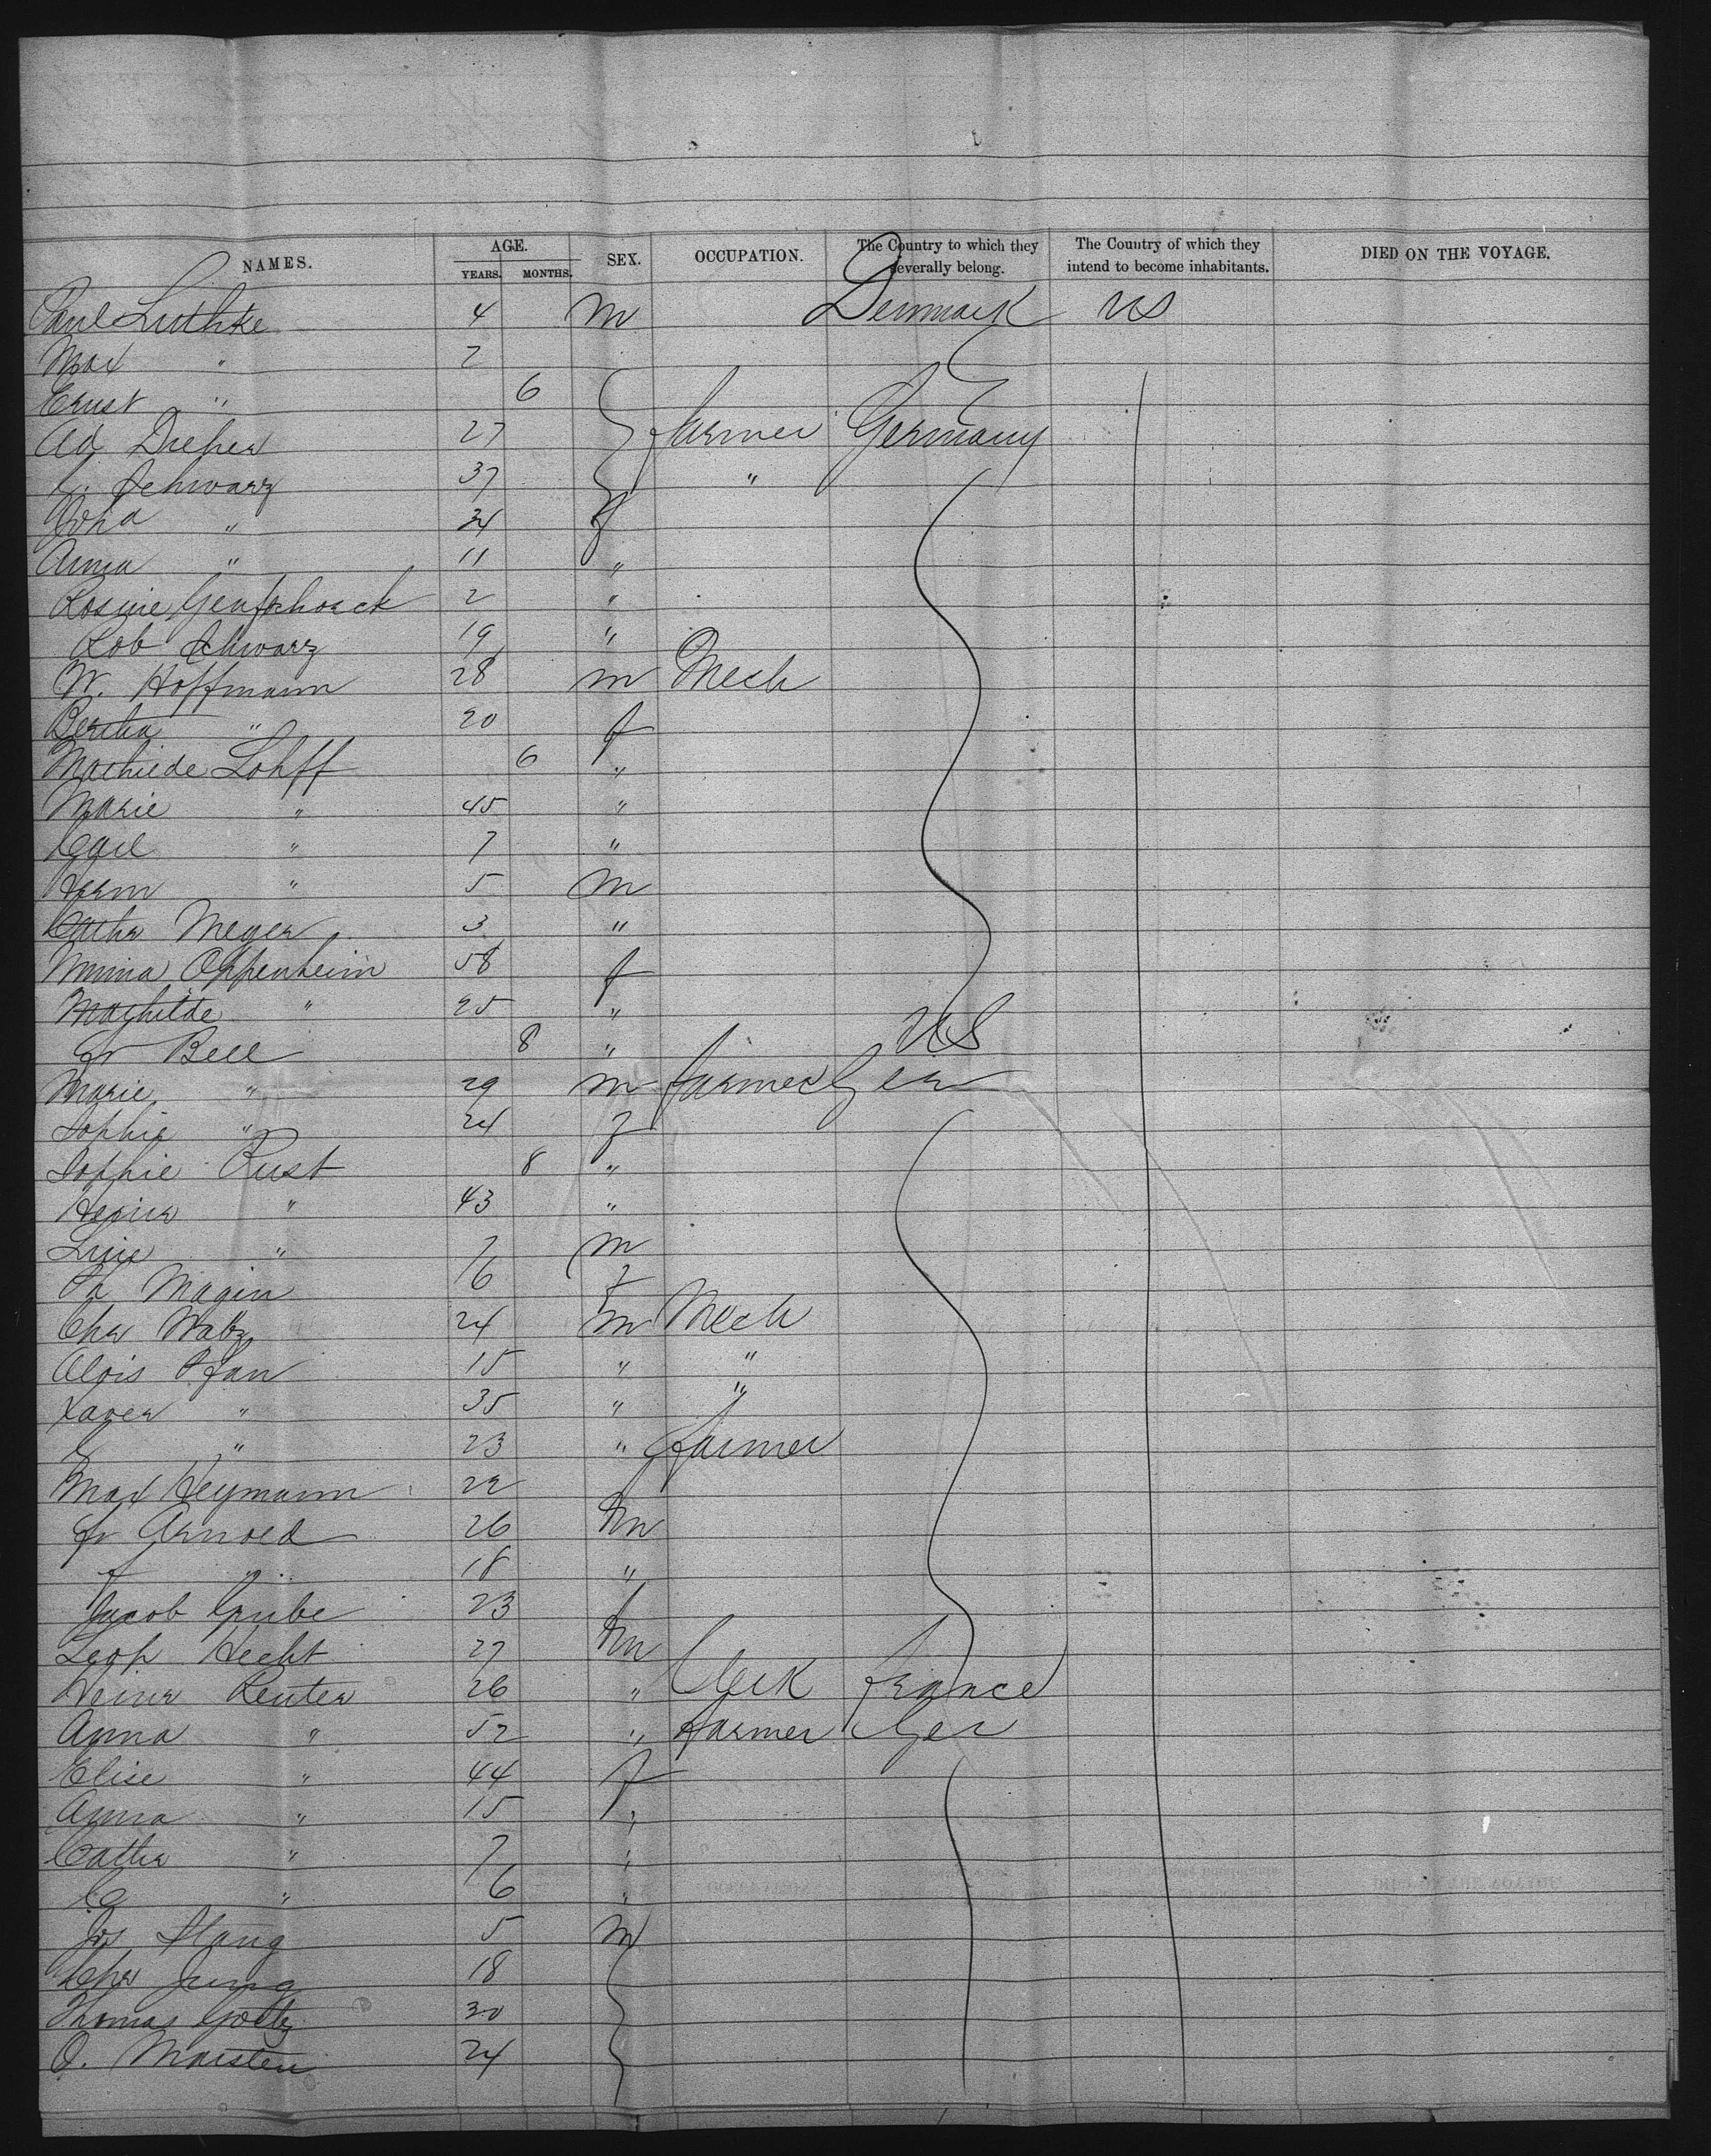 NAMES. AGE. YEARS. MONTHS. SEX. OCCUPATION. The Country to which they severally belong. The Country of which they intend to become inhabitants. DIED ON THE VOYAGE.
Paul Luthke 4 m Denmark US
Max " 2
Ernst " 6
Ad Dreher 27 farmer Germany
Schwarz 37 "
Joha " 34 f
Anna " 11 "
Rosine 2 "
Rob Schwarz 19 "
W. Hoffmann 28 m Mech
Bertha " 20 f
Mathilde Lohff 6 "
Marie " 45 "
Carl " 7 "
Herm " 5 m
Cathr Meyer 3 "
Minna Oppenheim 58 f
Mathilde " 25 "
Fr Bell 8 " US
Marie " 29 m farmer Ger
Sophie " 24 f
Sophie Rust 8 "
Heinr " 43 "
Luie " 7 m
Magin 6 f
Chr Waltz 24 m Mech
Alois Pfan 15 " "
Xaver " 35 " "
" 23 " farmer
Max Heymann 22
Fr Arnold 26 m
" 18 "
Jacob Grube 23 f
Leop Hecht 27 m
Heinr Reuter 26 " Clerk France
Anna " 52 " farmer Ger
Elise " 44 f
Anna " 15 "
Cathr " 7 "
" 6 "
Jos Stang 5 m
Chr Jung 18
Thomas Goetz 30
O. Marsten 24